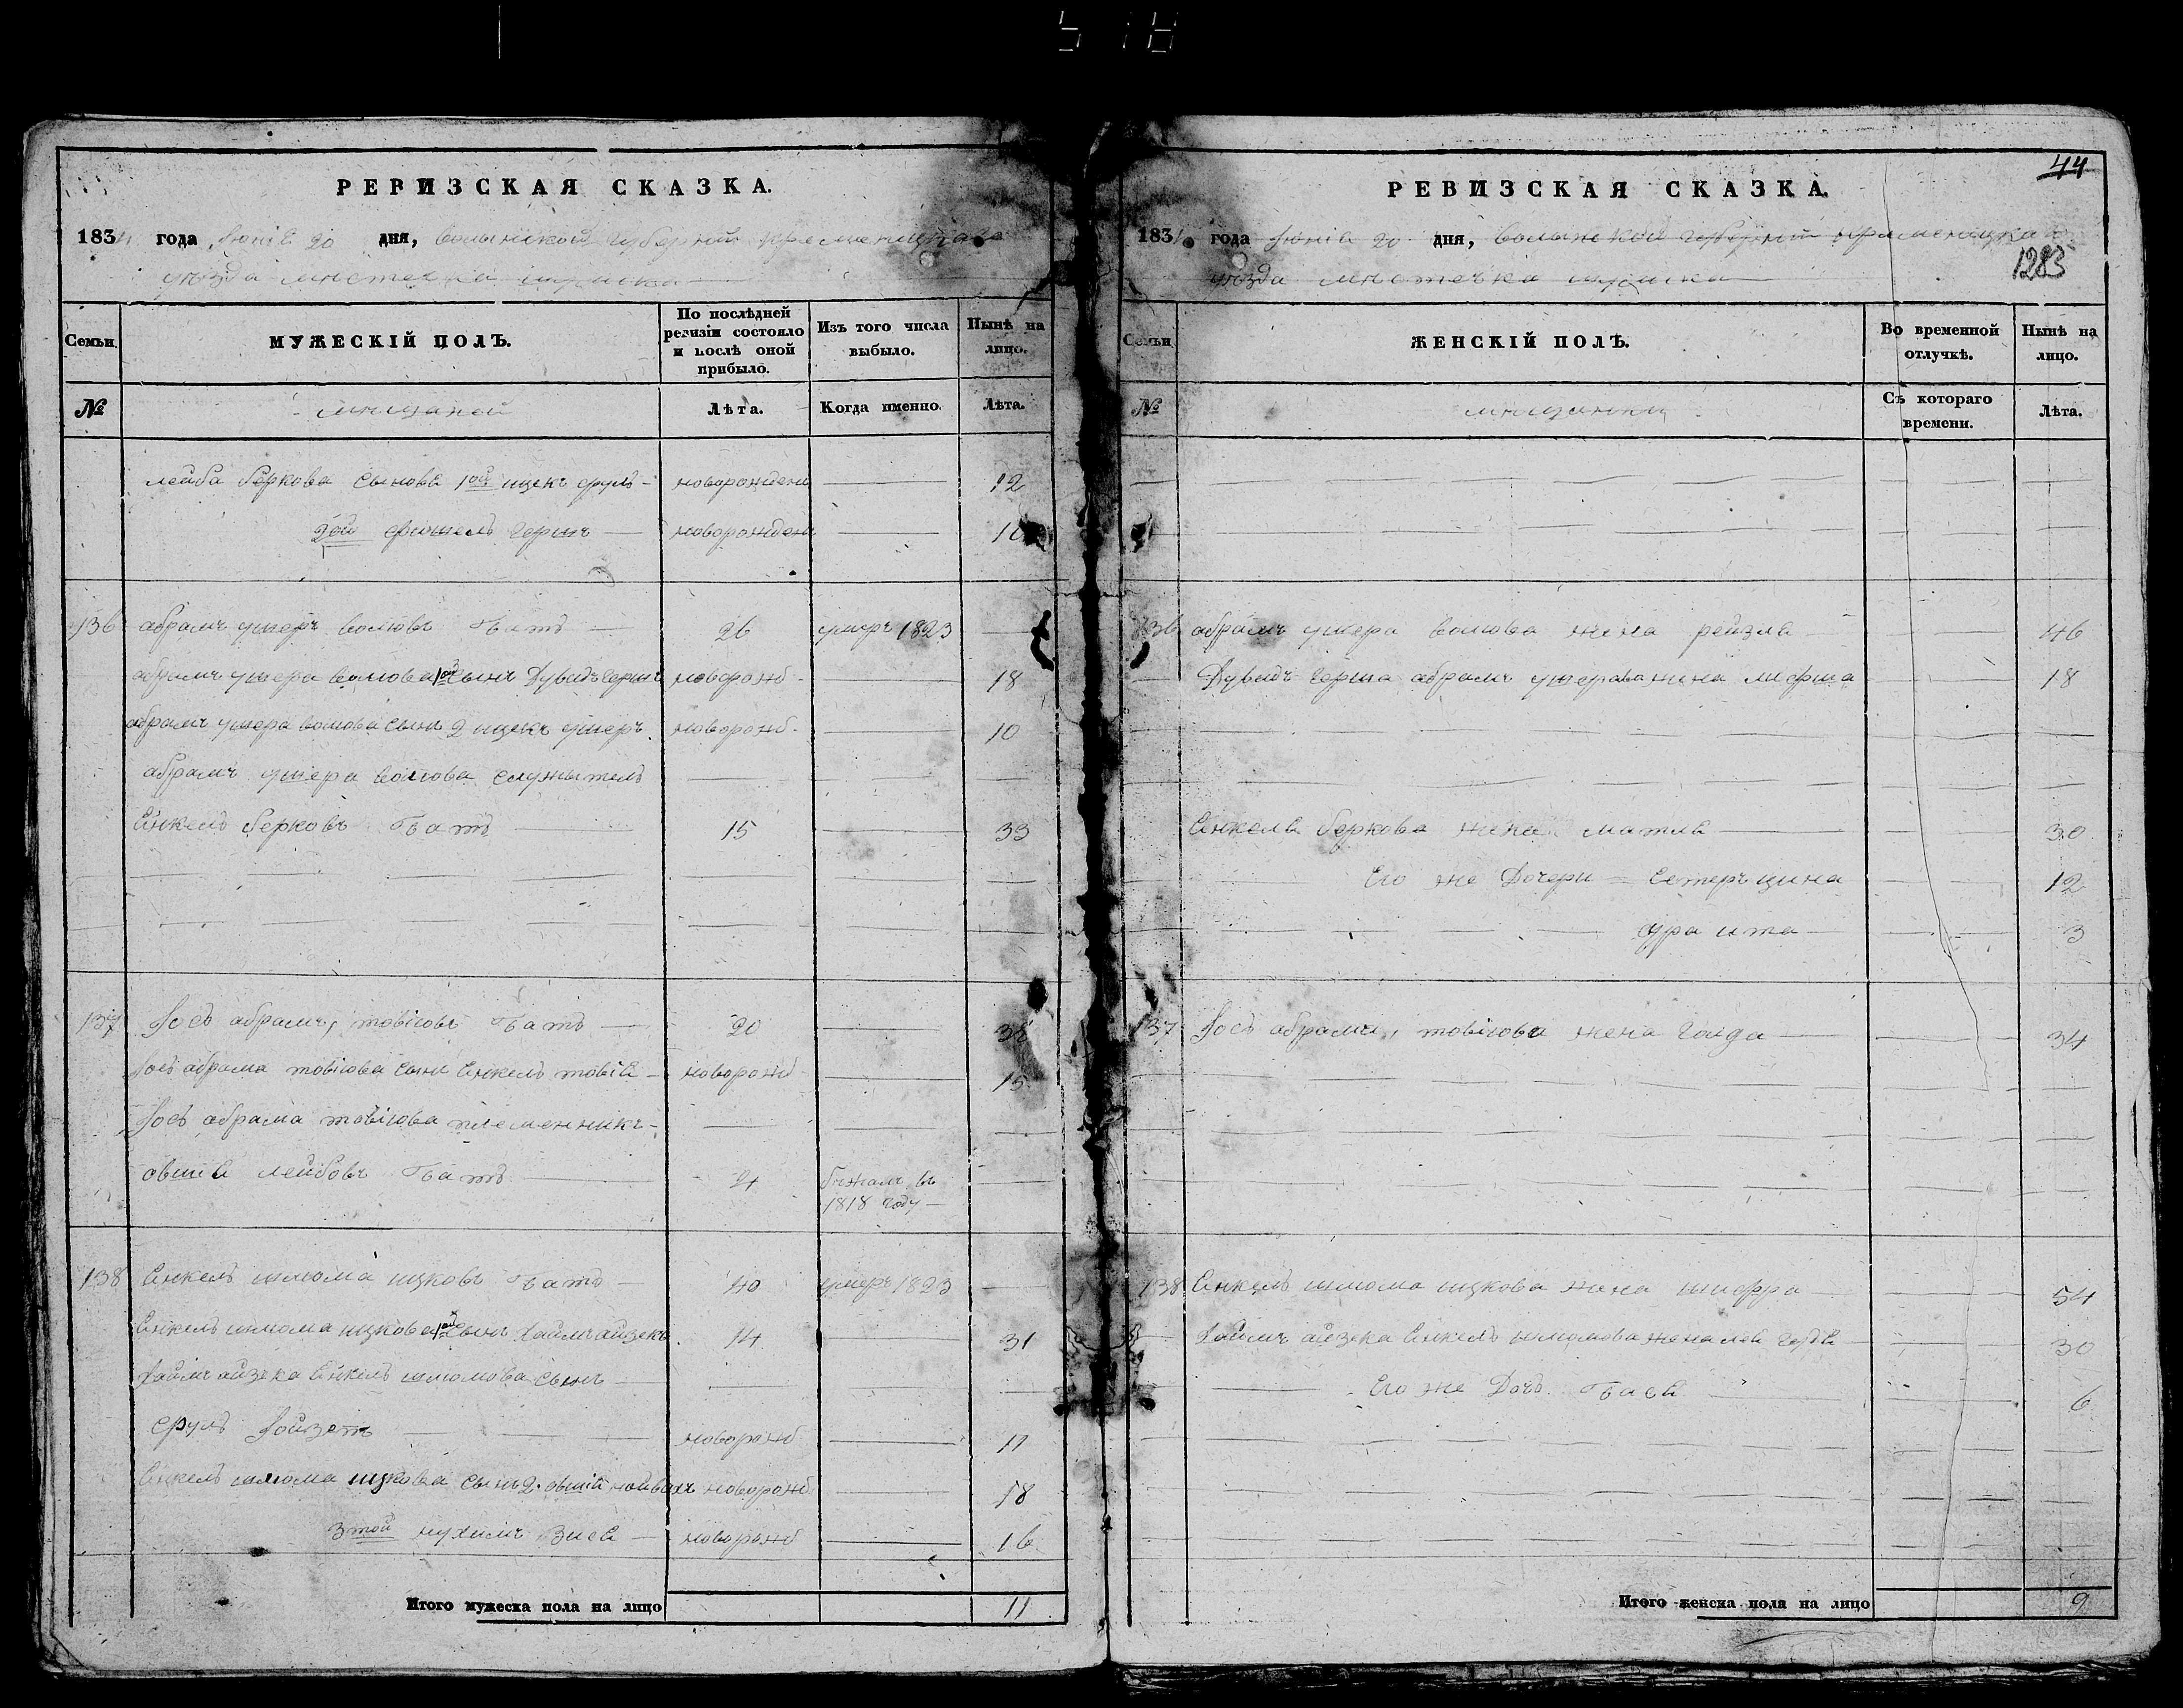 РЕВИЗСКАЯ СКАЗКА.
1834 года Июня 20 дня, волынской губернии кременецкаго
уѣзда мѣстечка шумска
Семьи.
МУЖЕСКІЙ ПОЛЪ.
По послѣдней ревизіи состояло и послѣ оной прибыло.
Изъ того числа выбыло.
Нынѣ на лицо.
№
мещаней
Лѣта.
Когда именно.
Лѣта.
лейба беркова сыновя 1ой ицек сруль новорожден 12
2ой фишель герш новорожден
136 абрамъ ушеръ волковъ 26 умеръ 1823
абрамъ ушера волкова 1ой сынъ Дувидъ гершъ новорожд 18
абрамъ ушера волкова сынъ 2 ицекъ ушеръ новорожд 10
абрамъ ушера волкова служитель
Енкель берковъ 15 33
137 Іось абрамъ, товіювъ 20 38
Іось абрама товіюва сынъ Енкель товіе новорожд 15
Іось абрама товіюва племенникъ
овшіе лейбовъ 21 бѣжалъ въ
1818 году
138 Енкель шлюма ицковъ 40 умеръ 1823
Енкель шлюма ицкова 1ой сынъ хаимъ айзекъ 14 31
хаимъ айзека Енкель шлюмова сынъ
сруль новорожд 11
Енкель шлюма ицкова сынъ 2. овшій новорожд 18
3той нухимъ зисе новорожд 16
Итого мужеска пола на лицо 11
44
РЕВИЗСКАЯ СКАЗКА.
183 года Юніе 20 дня, волынской губерніи кременецкаго
1283
уѣзда мѣстечка шумска
Семьи.
ЖЕНСКІЙ ПОЛЪ.
Во временной отлучкѣ.
Нынѣ на лицо.
№
мещанки
Съ котораго времени.
Лѣта.
136 абрамъ ушера волкова жена рейзля 46
Дувидъ герша абрамъ ушерава жена 18
Енкеля беркова жена матля 30
Его же Дочери Естеръ цина 12
сура ита 3
137 Іось абрама, товіюва жена 34
138 Енкель шлюма ицкова жена шифра 54
хаимъ айзека Енкель шлюмова жена 30
Его же Дочь бася 6
Итого женска пола на лицо 9